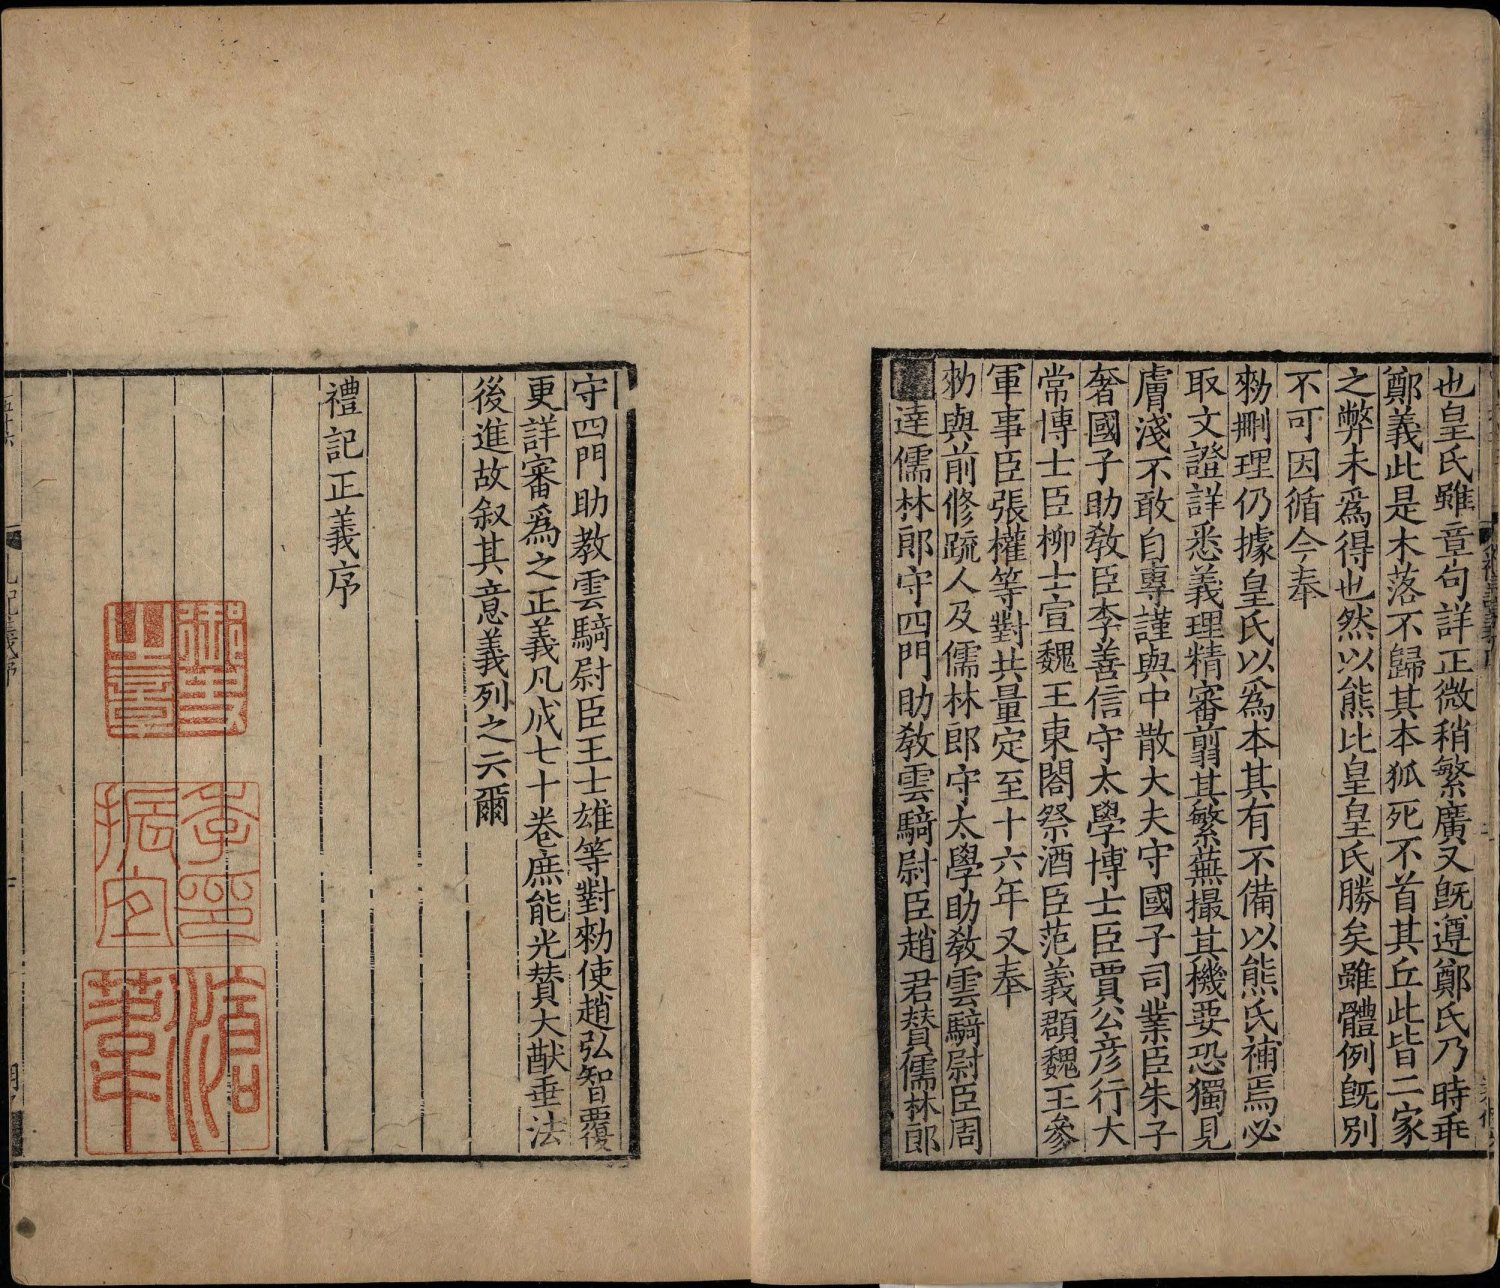 也皇氏雖章句詳正微稍繁廣又旣遵鄭氏乃時乖
鄭義此是木落不歸其本狐死不首其丘此皆二家
之弊未爲得也然以熊比皇皇氏勝矣雖體例旣別
不可因循今奉
勑刪理仍據皇氏以爲本其有不備以熊氏補焉必
取文證詳悉義理精審翦其繁蕪撮其機要恐獨見
膚淺不敢自專謹與中散大夫守國子司業臣朱子
奢國子助敎臣李善信守太學博士臣賈公彦行大
常博士臣柳士宣魏王東閤祭酒臣范義頵魏王參
軍事臣張權等對共量定至十六年又奉
勑與前修䟽人及儒林郎守太學助敎雲騎尉臣周
達儒林郎守四門助敎雲騎尉臣趙君賛儒林郎
守四門助教雲騎尉臣王士雄等對勑使趙弘智覆
更詳審爲之正義凡成七十卷庶能光賛大猷垂法
後進故叙其意義列之云爾
禮記正義序
御史之章
季印振宜
滄葦